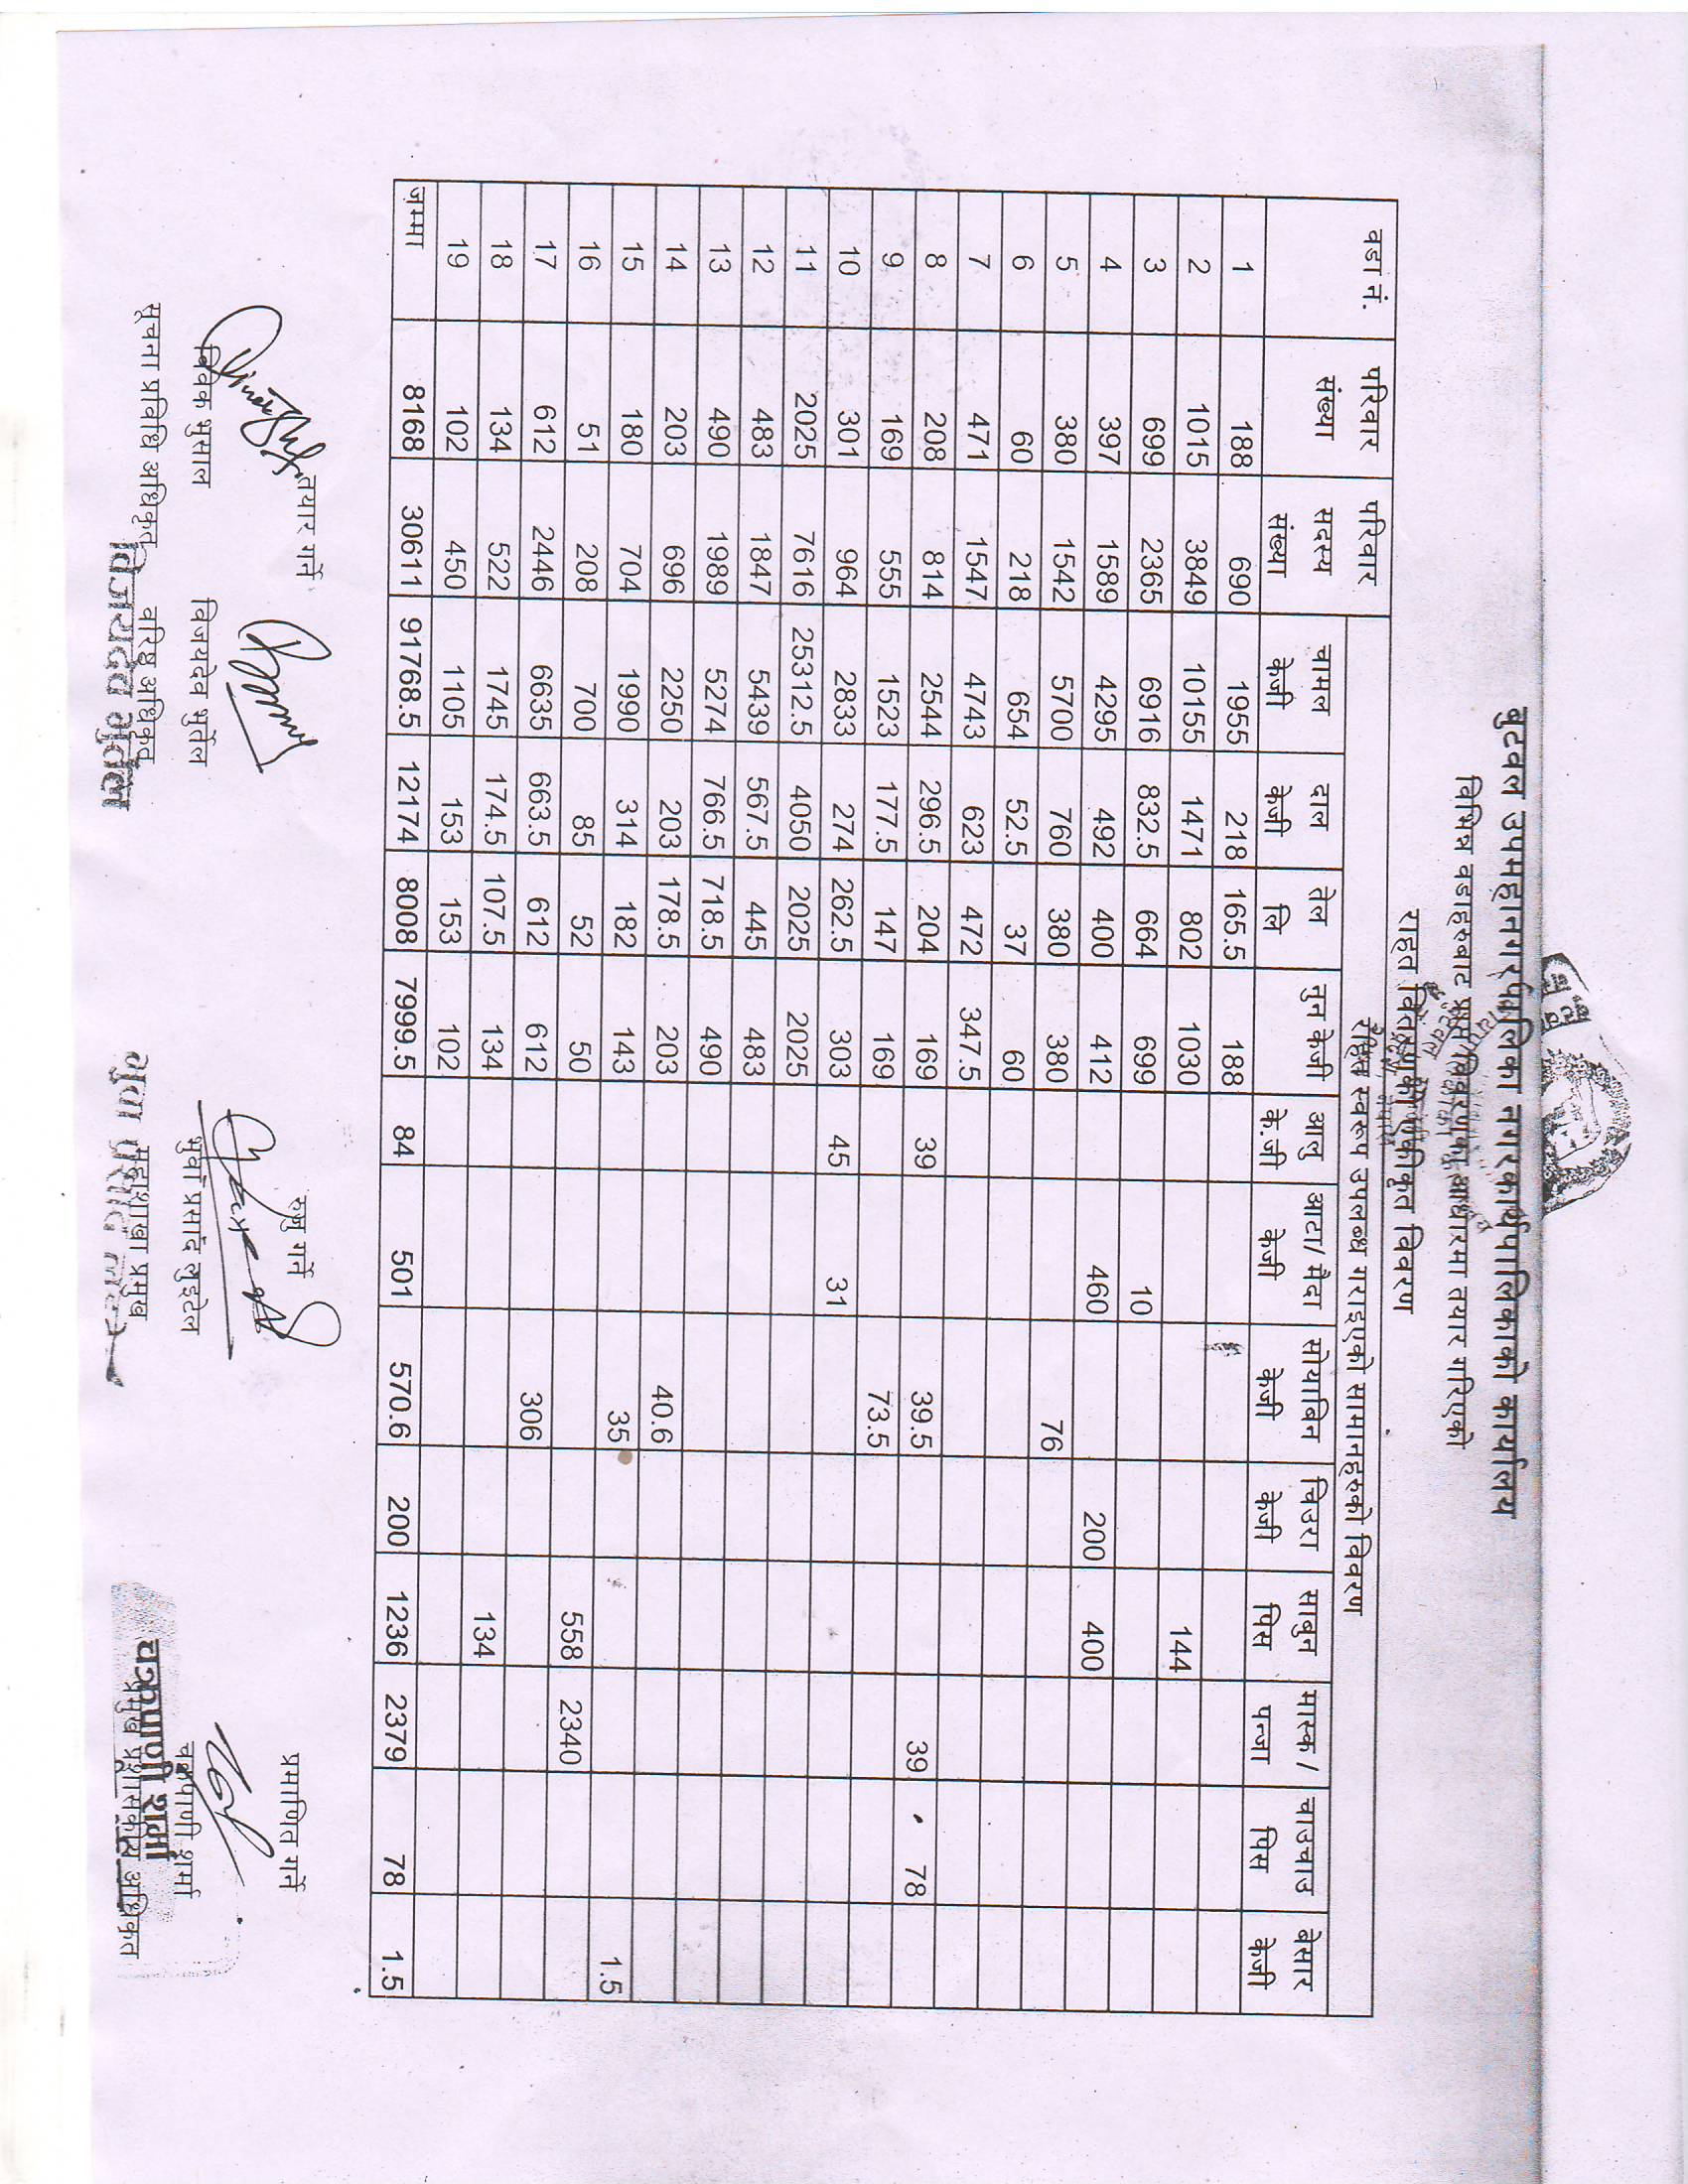 बुटवल उपमहानगरपालिका नगरकार्यपालिकाको कार्यालय
विभिन्न वडाहरुबाट प्राप्त विवरणका आधारमा तयार गरिएको
राहत वितरणको एकीकृत विवरण
वडा नं. परिवार संख्या परिवार सदस्य संख्या राहत स्वरूप उपलब्ध गराइएको सामानहरुको विवरण
चामल केजी दाल केजी तेल लि नुन केजी आलु के.जी आटा/ मैदा केजी सोयाबिन केजी चिउरा केजी साबुन पिस मास्क / पन्जा चाउचाउ पिस बेसार केजी
1 188 690 1955 218 165.5 188
2 1015 3849 10155 1471 802 1030 144
3 699 2365 6916 832.5 664 699 10
4 397 1589 4295 492 400 412 460 200 400
5 380 1542 5700 760 380 380 76
6 60 218 654 52.5 37 60
7 471 1547 4743 623 472 347.5
8 208 814 2544 296.5 204 169 39 39.5 39 78
9 169 555 1523 177.5 147 169 73.5
10 301 964 2833 274 262.5 303 45 31
11 2025 7616 25312.5 4050 2025 2025
12 483 1847 5439 567.5 445 483
13 490 1989 5274 766.5 718.5 490
14 203 696 2250 203 178.5 203 40.6
15 180 704 1990 314 182 143 35 1.5
16 51 208 700 85 52 50 558 2340
17 612 2446 6635 663.5 612 612 306
18 134 522 1745 174.5 107.5 134 134
19 102 450 1105 153 153 102
जम्मा 8168 30611 91768.5 12174 8008 7999.5 84 501 570.6 200 1236 2379 78 1.5
तयार गर्ने रुजु गर्ने प्रमाणित गर्ने
विवेक भुसाल विजयदेव भुर्तेल भुवा प्रसाद लुइटेल चक्रपाणी शर्मा
सूचना प्रविधि अधिकृत वरिष्ठ अधिकृत महाशाखा प्रमुख प्रमुख प्रशासकीय अधिकृत
विजयदेव भुर्तेल भुवा प्रसाद चक्रपाणी शर्मा